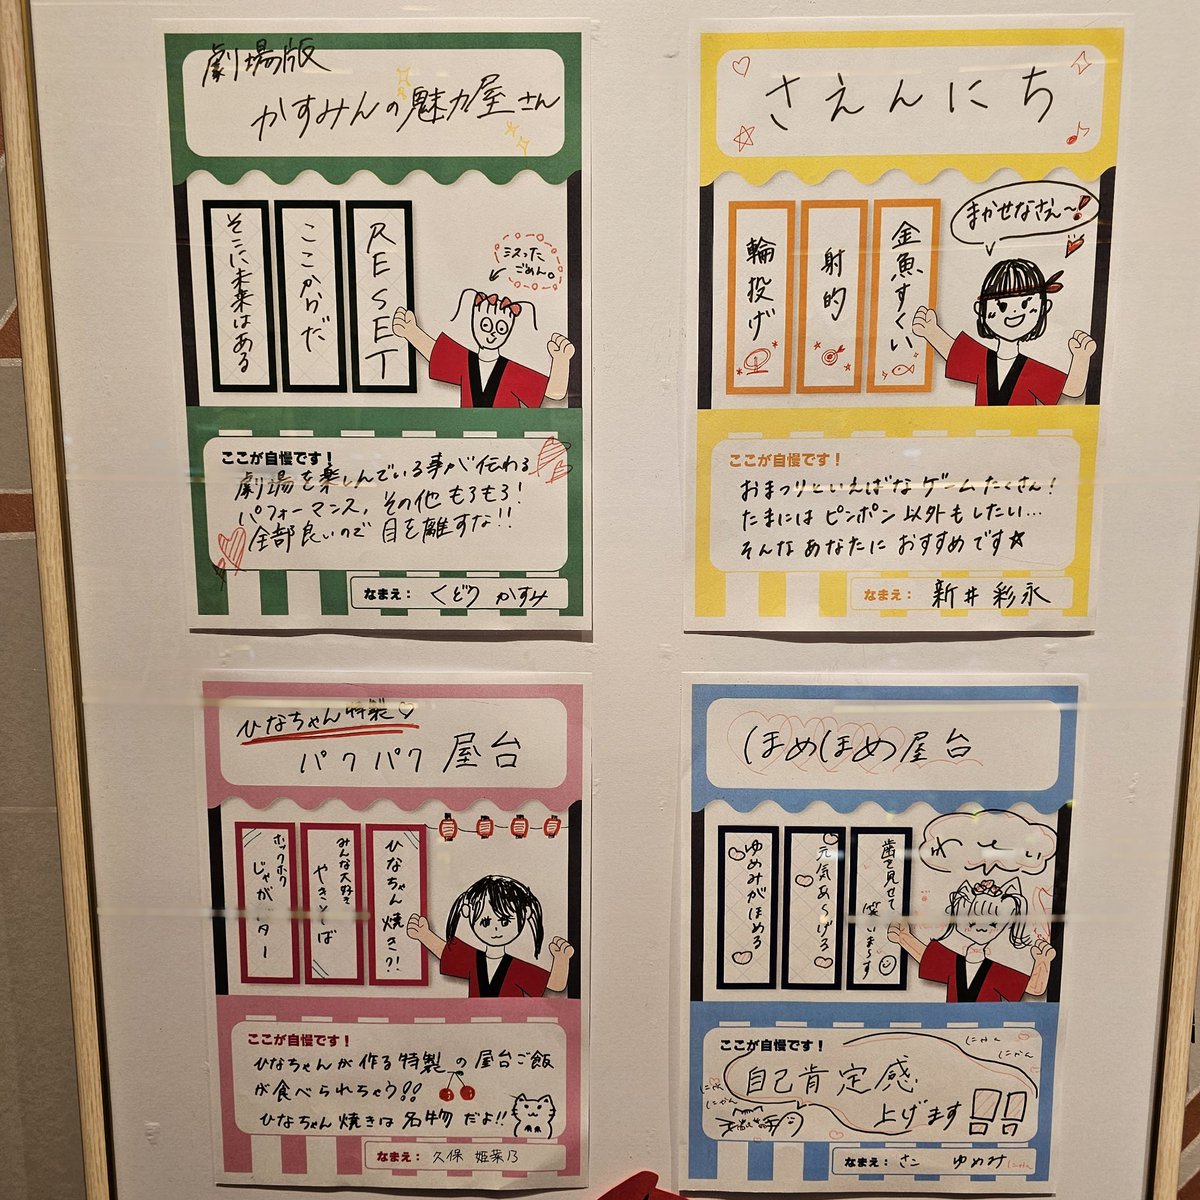 劇場版
かすみんの魅力屋さん
RESET
ここからだ
そこに未来はある
ミスった
ごめん。
ここが自慢です！
劇場を楽しんでいる事が伝わる
パフォーマンス、その他もろもろ！
全部良いので目を離すな!!
なまえ： くどう かすみ
さえんにち
まかせなさえ〜!
金魚すくい
射的
輪投げ
ここが自慢です！
おまつりといえばなゲームたくさん！
たまには ピンポン 以外もしたい…
そんな あなたに おすすめです☆
なまえ： 新井 彩永
ひなちゃん特製♡
パクパク屋台
ひなちゃん焼き?!
みんな大好き
やきそば
ホックホク
じゃがバター
ここが自慢です！
ひなちゃんが作る特製の屋台ご飯
が食べられちゃう!!
ひなちゃん焼きは名物だよ!!
なまえ： 久保 姫菜乃
ほめほめ屋台
わーい
歯を見せて
笑いまーす
元気あ〜げる
ゆめみがほめる
ここが自慢です！
にゃん
にゃん
にゃん
にゃん
自己肯定感
上げます
なまえ： さン ゆめみ にゃん